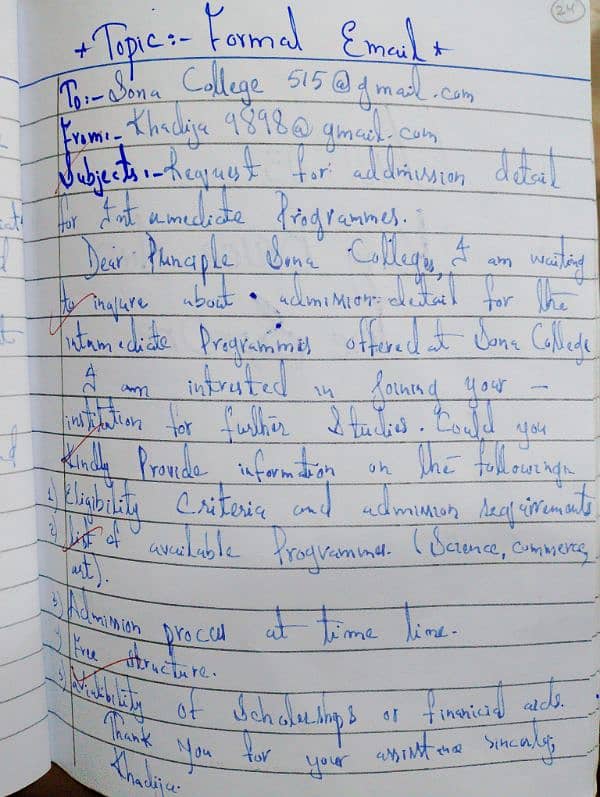 24
* Topic:- Formal Email *
To:- Sona College 515@gmail.com
From:- Khadija 9898@gmail.com
Subjects:- Request for addmission detail
for Intumediate Programmes.
Dear Prinaiple Sona College, I am waiting
to inqure about admission detail for the
intumediate Programmes offered at Sona College
I am intrusted in joining your -
institution for further Studies. Could you
kindly Provide information on the following
1) Eligibility Criteria and admission requirements
2) List of available Programmes. (Science, commerce,
art).
3) Admission proces at time line.
4) Free structure.
5) Avialibility of Scholarships or financial aids.
Thank you for your assistance sincerly,
Khadija.